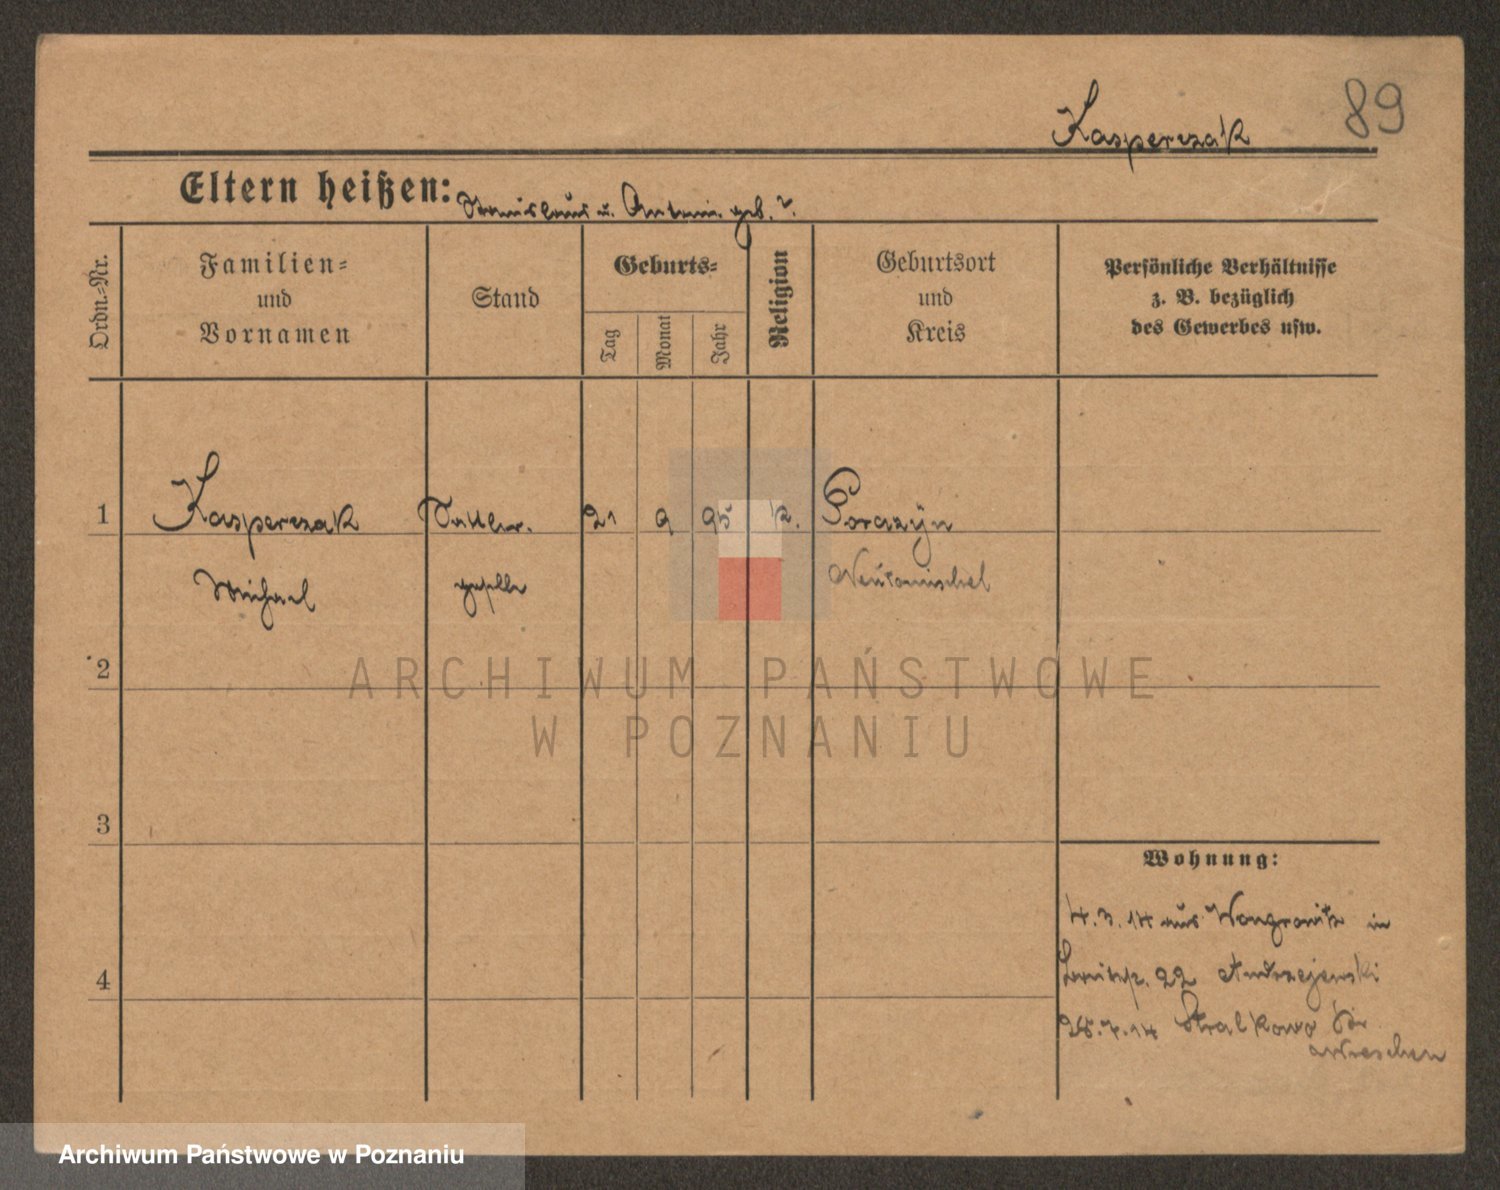 89
Kasperczak
Eltern heißen: Stanislaus u. Antonie geb. ?.
Ordn.-Nr.
Familien-
und
Vornamen
Stand
Geburts-
Tag
Monat
Jahr
Religion
Geburtsort
und
Kreis
Persönliche Verhältnisse
z. B. bezüglich
des Gewerbes usw.
1
Kasperczak Sattler. 21 9 95 k. Porazyn
Michael geselle Neutomischel
2
ARCHIWUM PAŃSTWOWE
W POZNANIU
3
Wohnung:
4.3.14 aus Wongrowitz in
22 Andrzejewski
4
14 Stralkowo Kr
Wreschen
Archiwum Państwowe w Poznaniu